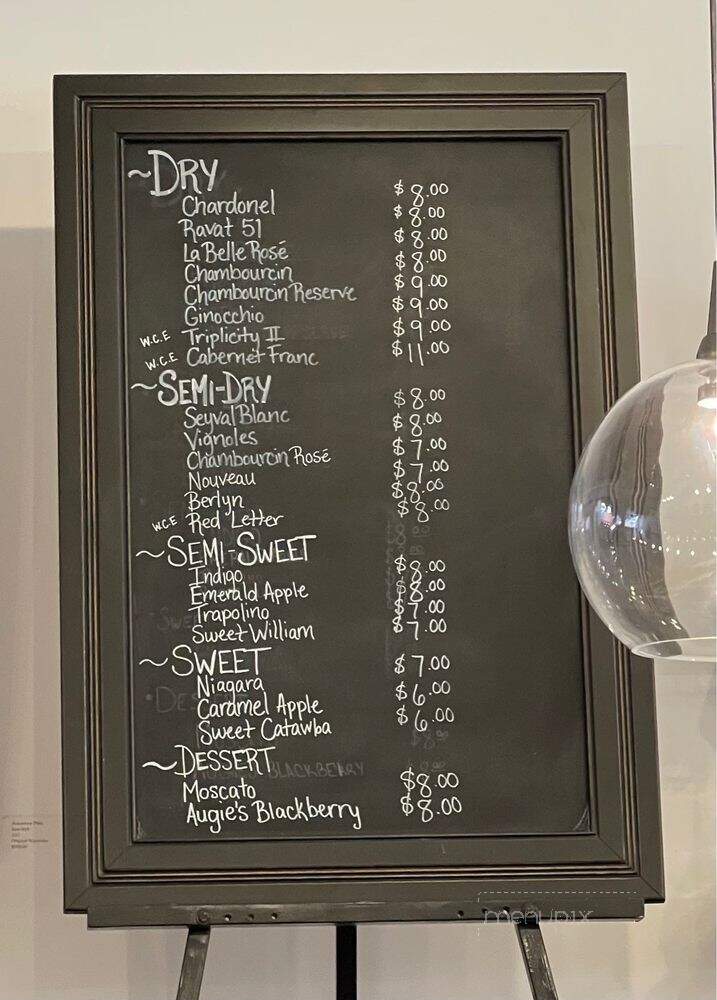 ~DRY
Chardonel $8.00
Ravat 51 $8.00
La Belle Rosé $8.00
Chambourcin $8.00
Chambourcin Reserve $9.00
Ginocchio $9.00
W.C.E Triplicity II $9.00
W.C.E Cabernet Franc $11.00
~SEMI-DRY
Seyval Blanc $8.00
Vignoles $8.00
Chambourcin Rosé $7.00
Nouveau $7.00
Berlyn $8.00
W.C.E Red Letter $8.00
~SEMI-SWEET
Indigo $8.00
Emerald Apple $8.00
Trapolino $7.00
Sweet William $7.00
~SWEET
Niagara $7.00
Caramel Apple $6.00
Sweet Catawba $6.00
~DESSERT
BLACKBERRY
Moscato $8.00
Augie's Blackberry $8.00
menupix